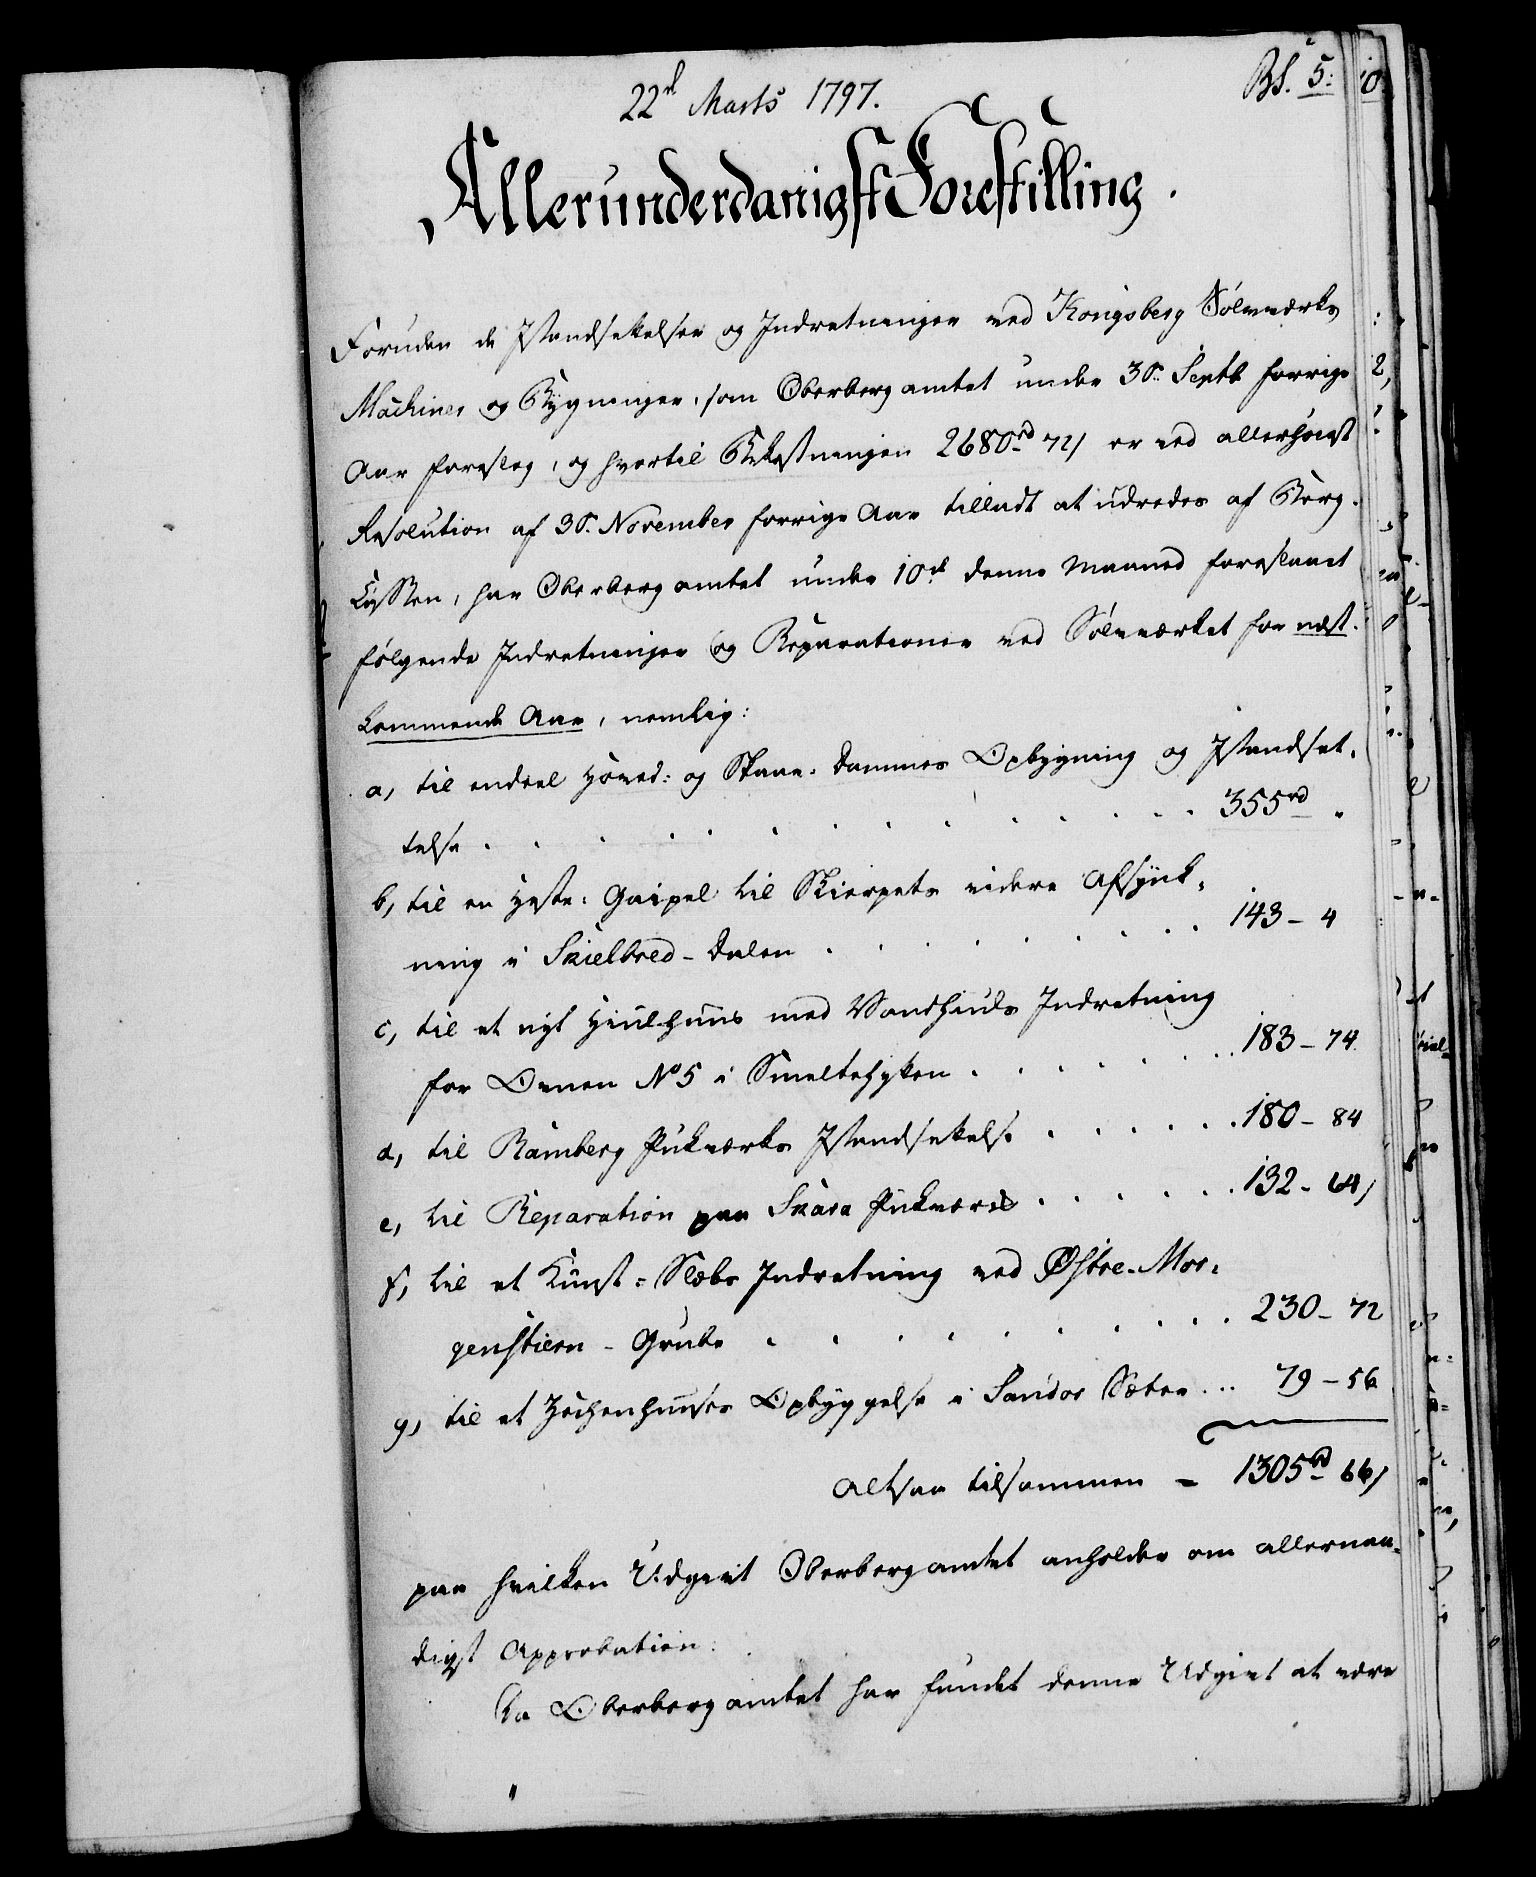 22d Marts 1797.
BS. 5:
Allerunderdanigst Forestilling.
Foruden de Istandsættelser og Indretninger ved Kongsberg Sølvværks
Machiner og Bygninger, som Oberbergamtet under 30te Septb forrige
Aar foreslog, og hvortil Bekostningen 2680rd 72/ er ved allerhøiest
Resolution af 30. November forrige Aar tilladt at udredes af Berg-
Cassen, har Oberbergamtet under 10d denne Maaned foreslaaet
følgende Indretninger og Reparationer ved Sølvværket for næst-
kommende Aar, nemlig:
a, til endeel Hoved- og Skaae-Dammes Opbygning og Istandsæt-
telse . . . 355rd "
b, til en Heste-Gaipel til Skierpets videre Afsynk-
ning i Skielbred-Dalen . . . 143 - 4
c, til et nyt Hiulhuus med Vandhiuls Indretning
for Ovnen No 5 i Smeltehytten . . . 183 - 74
d, til Ramberg Pukværks Istandsættelse . . . 180 - 84
e, til Reparation paa Skara Pukværk . . . 132 - 64/
f, til et Kunst-Slæbs Indretning ved Østre-Mor-
genstiern-Grube . . . 230 - 72
g, til et Zechenhuuses Opbyggelse i Sandos Sæter ... 79 - 56
altsaa tilsammen = 1305rd 66/
paa hvilken Udgivt Oberbergamtet anholder om allernaa-
digst Approbation.
Da Oberbergamtet har fundet denne Udgivt at være